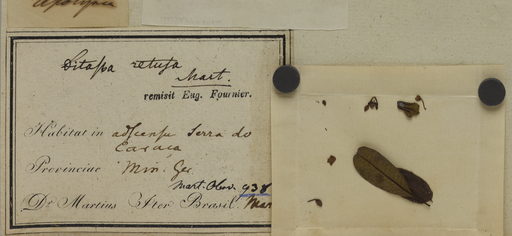 Ditassa retusa
Mart.
remisit Eug. Fournier.
Habitat in adscensu Serra do
Caraça
Provinciae Min. Ger.
Mart. Obs. 938
Dr. Martius Iter Brasil.